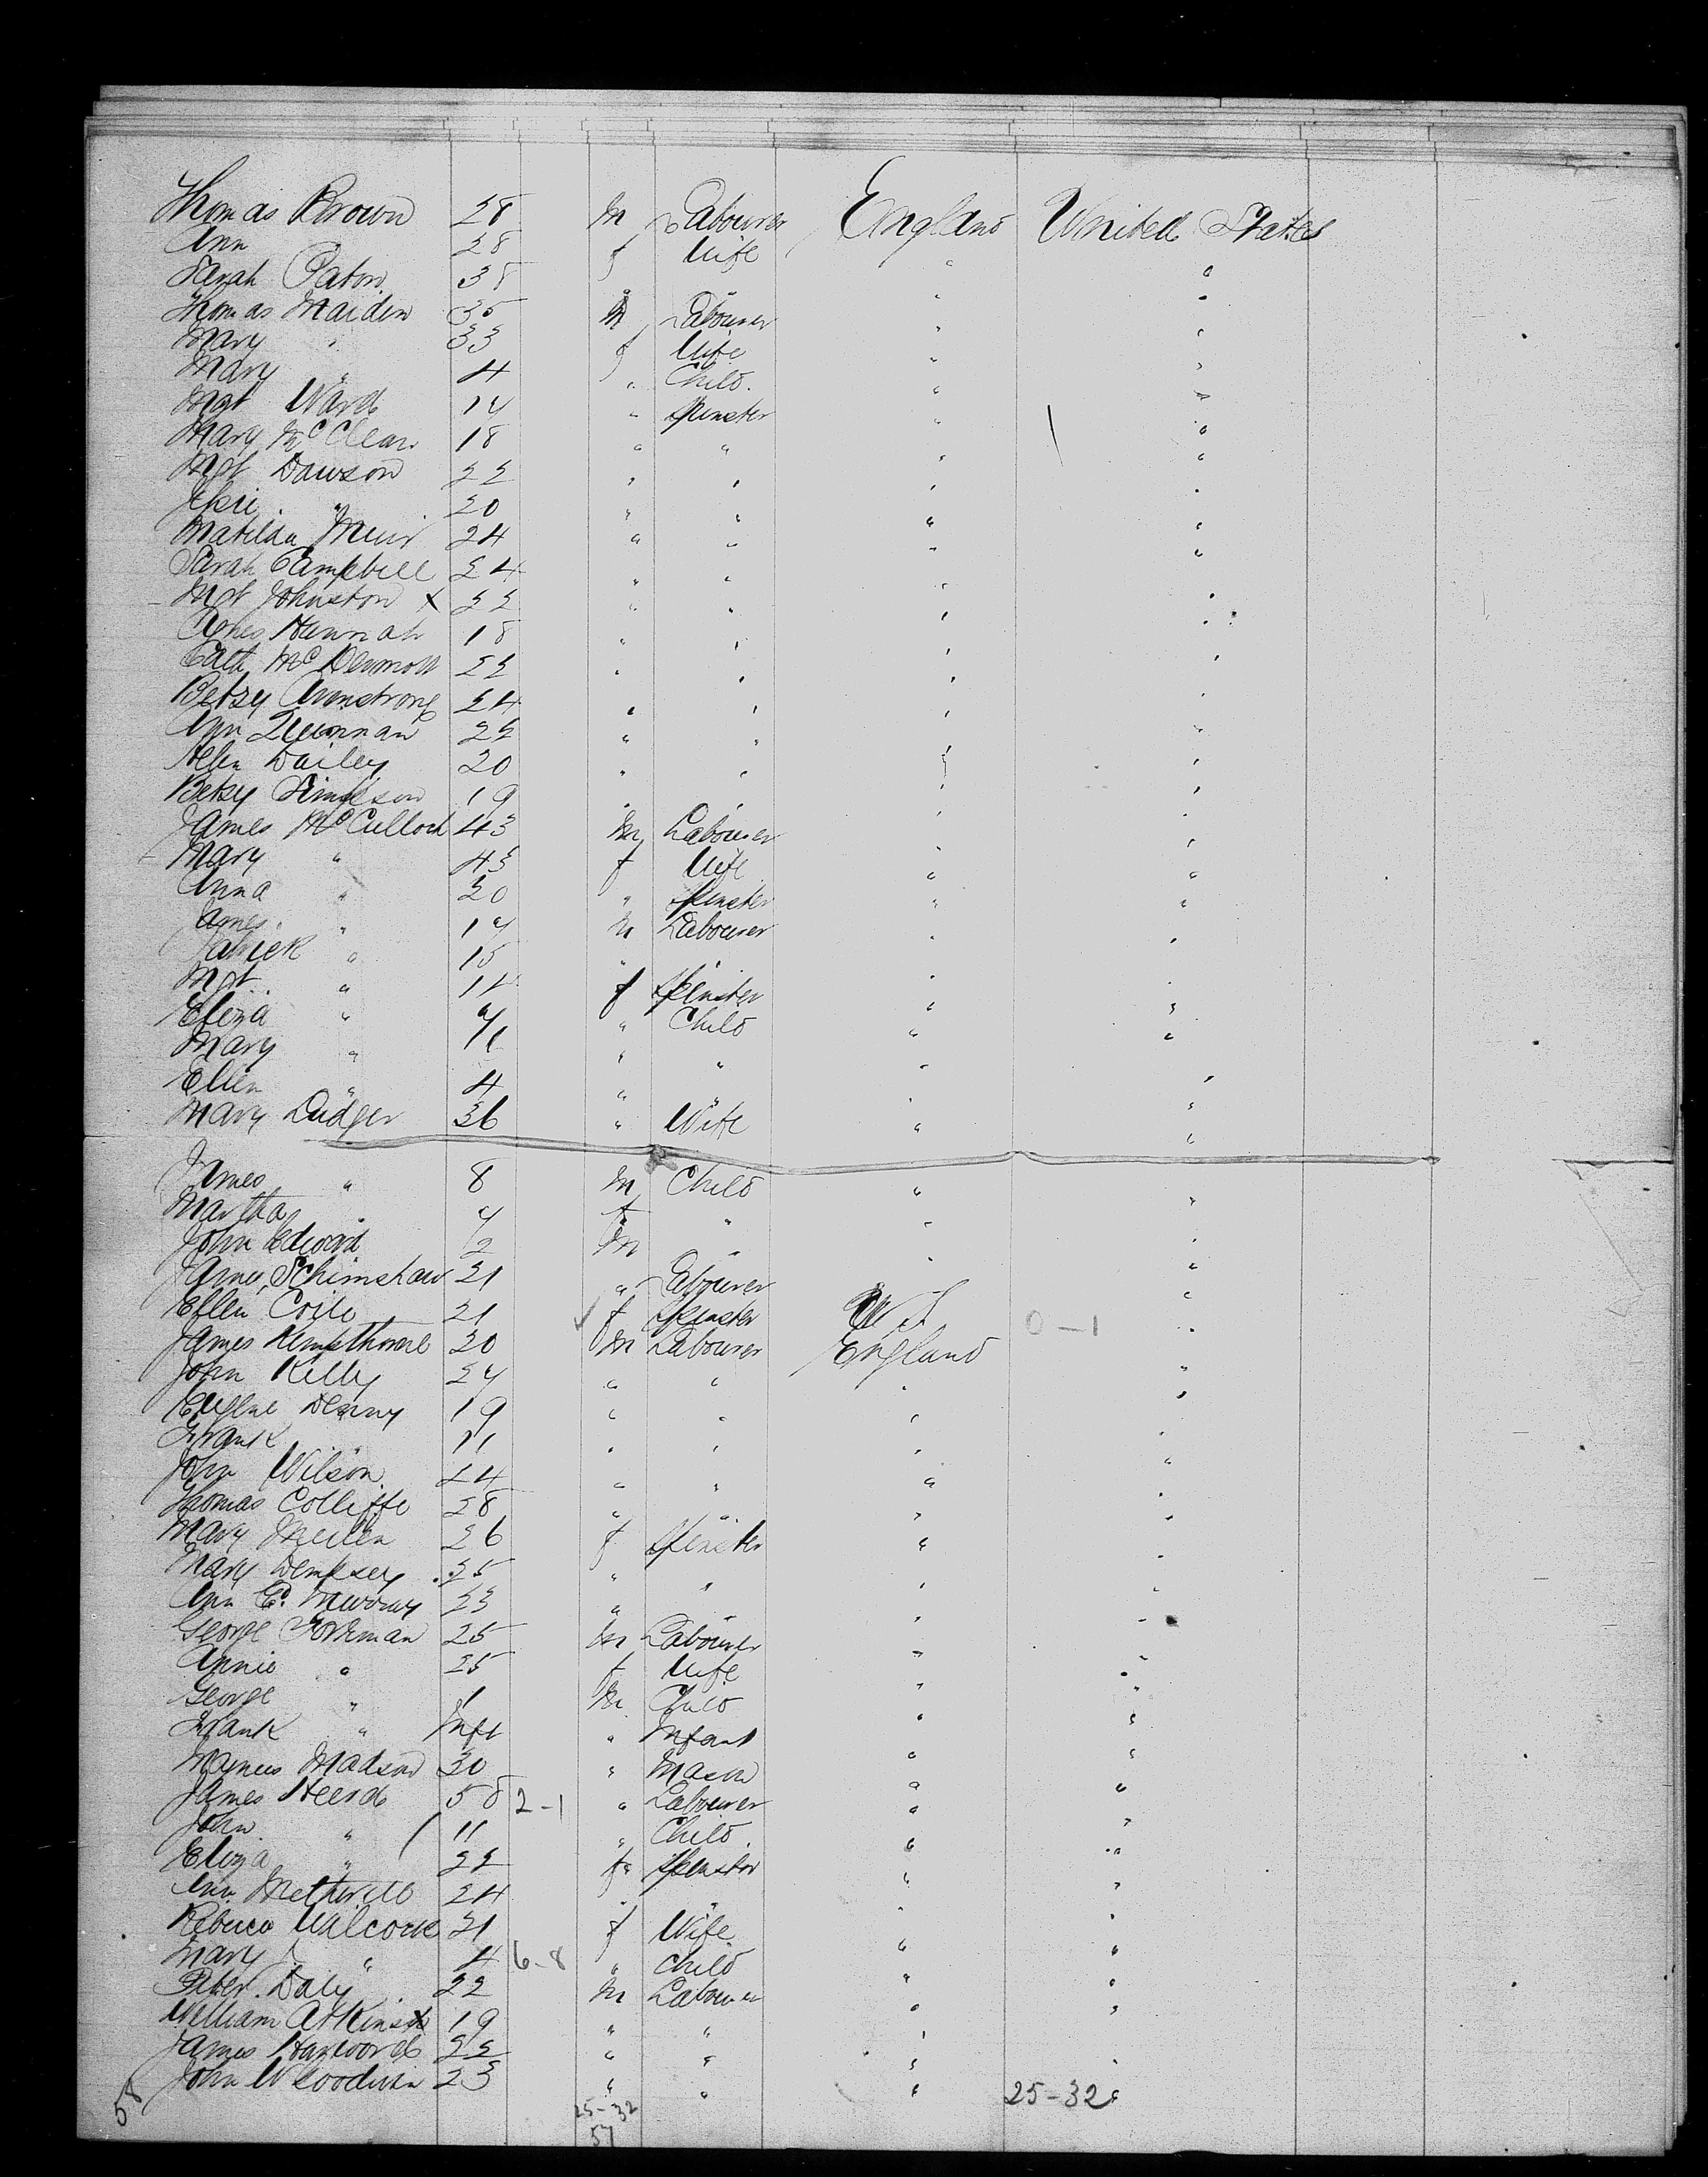 Thomas Brown 28 M Labourer England United States
Ann 28 f Wife " "
Sarah Paton 38 " " " "
Thomas Maiden 35 M Labourer " "
Mary " 33 f Wife " "
Mary " 4 " Child. " "
Mgt Ward 14 " Spinster " "
Mary McClean 18 " " " "
Mgt Dawson 22 " " " "
" 20 " " " "
Matilda Muir 24 " " " "
Sarah Campbell 24 " " " "
Mgt Johnston X 22 " " " "
Agnes Hannah 18 " " " "
Cath McDermott 22 " " " "
Betsy Armstrong 24 " " " "
Ann Quinnan 22 " " " "
Helen Dailey 20 " " " "
Betsy Simpson 19 " " " "
James McCulloch 43 M Labourer " "
Mary " 43 f Wife " "
Anna " 20 " Spinster " "
James " 17 M Labourer " "
Patrick " 15 " " " "
Mgt " f Spinster " "
Eliza " " Child " "
Mary " " " " "
Ellen " 4 " " " "
Mary Dudger 36 " Wife " "
James " 8 M Child " "
Martha " 4 f " " "
John Edward 2 M " " "
James Schimshaw 21 " Labourer " "
Ellen Coile 21 f Spinster U S 0-1 "
James Kempthorne 20 M Labourer England "
John Kelly 24 " " " "
Eugene Denny 19 " " " "
Frank " 11 " " " "
John Wilson 24 " " " "
Thomas Colliffe 28 " " " "
Mary 26 f Spinster " "
Mary Dempsey 25 " " " "
Ann Ed. Murray 23 " " " "
George Foreman 25 M Labourer " "
Annie " 25 f Wife " "
George " 1 M Child " "
Frank " Inft " Infant " "
Magnus Madson 30 " Mason " "
James Heard 58 2-1 " Labourer " "
John " 11 " Child. " "
Eliza " 22 f Spinster " "
Ann Metherell 24 " " " "
Rebecca Wilcock 21 f Wife " "
Mary J " 4 6-8 " Child " "
Peter Daly 22 M Labourer " "
William Atkins 19 " " " "
James Haywood 22 " " " "
John W Goodwin 23 " " " "
58 25-32 25-32
57